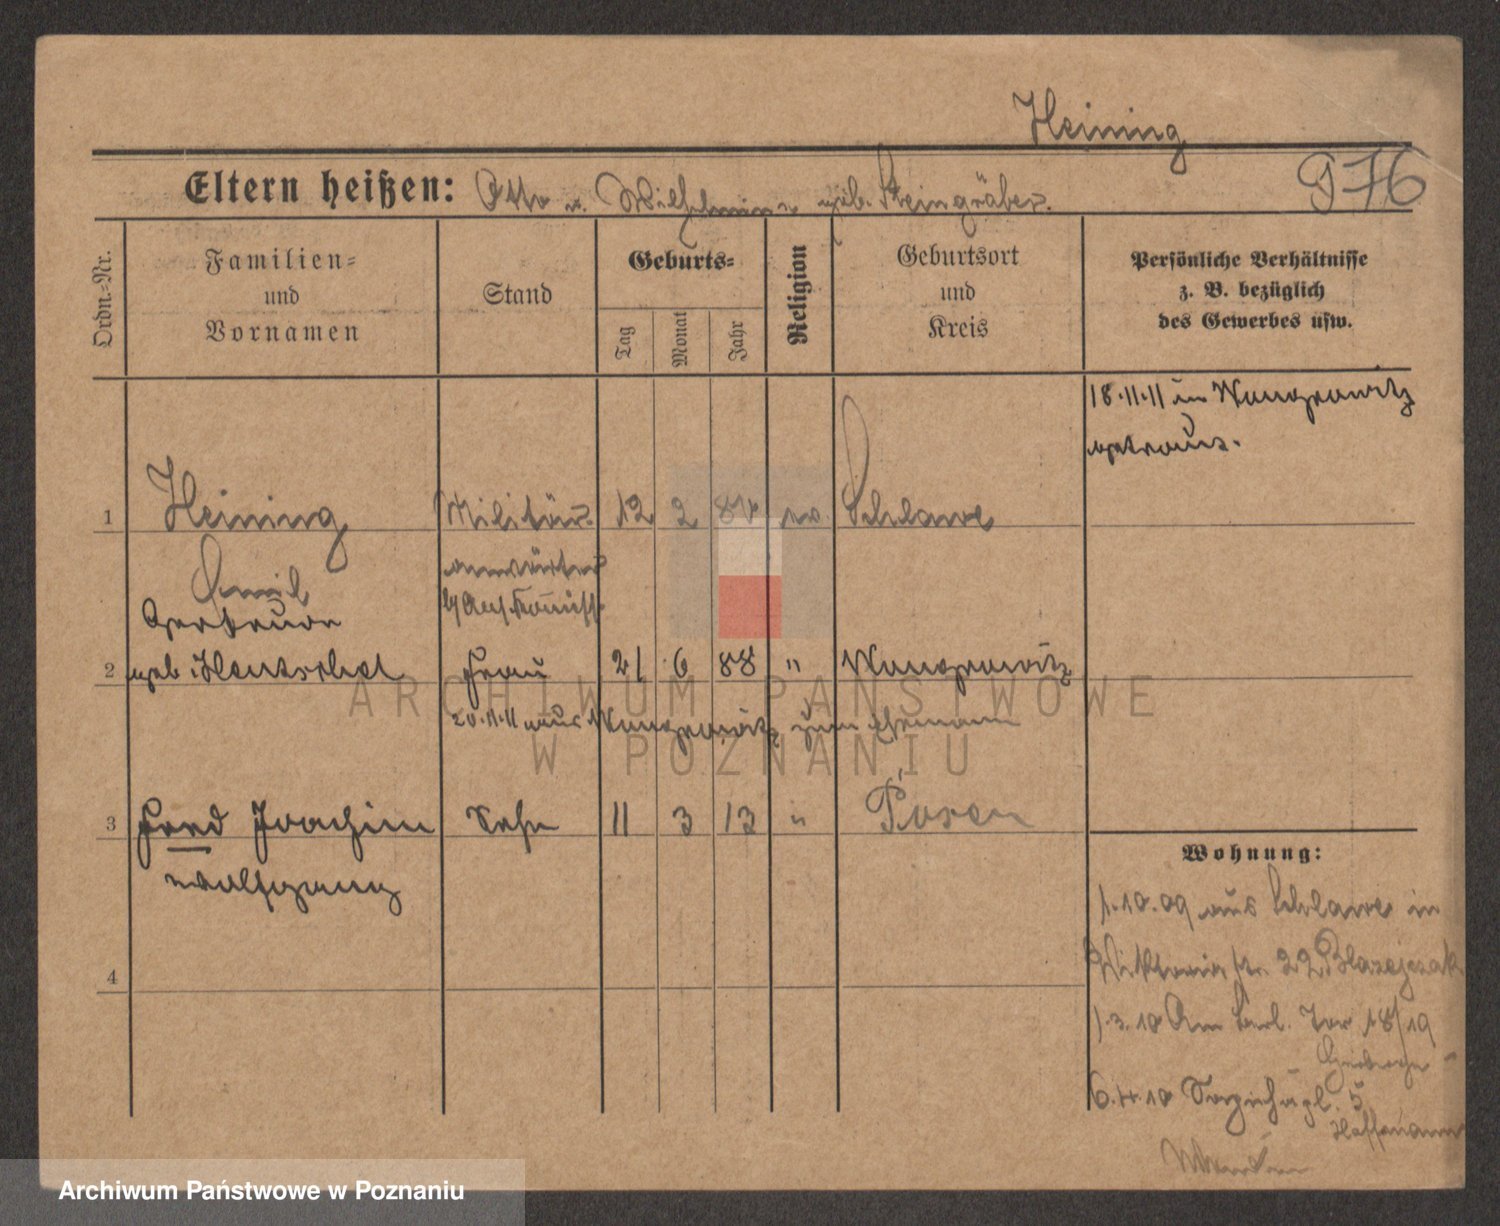 Heining
976
Eltern heißen: Otto u. Wilhelmine geb. Steingräber.
Ordn.=Nr.
Familien=
und
Vornamen
Stand
Geburts=
Tag
Monat
Jahr
Religion
Geburtsort
und
Kreis
Persönliche Verhältnisse
z. B. bezüglich
des Gewerbes usw.
18.11.11 in Wongrowitz
getraut.
1 Heining Militär 12 2 84 ev Schlawe
Emil
anwärter
Gertrud
2 geb. Hentschel Frau 21 6 88 " Wongrowitz
20.11.11 aus Wongrowitz zum Ehemann
3 Fred Joachim Sohn 11 3 13 " Posen
Wolfgang
4
Wohnung:
1.10.09 aus Schlawe in
Viktoria str. 22 Blazejczak
1.3.10 Am Berl. Tor 18/19
6.4.10 Sapiehapl. 5
Hoffmann
ARCHIWUM PAŃSTWOWE
W POZNANIU
Archiwum Państwowe w Poznaniu